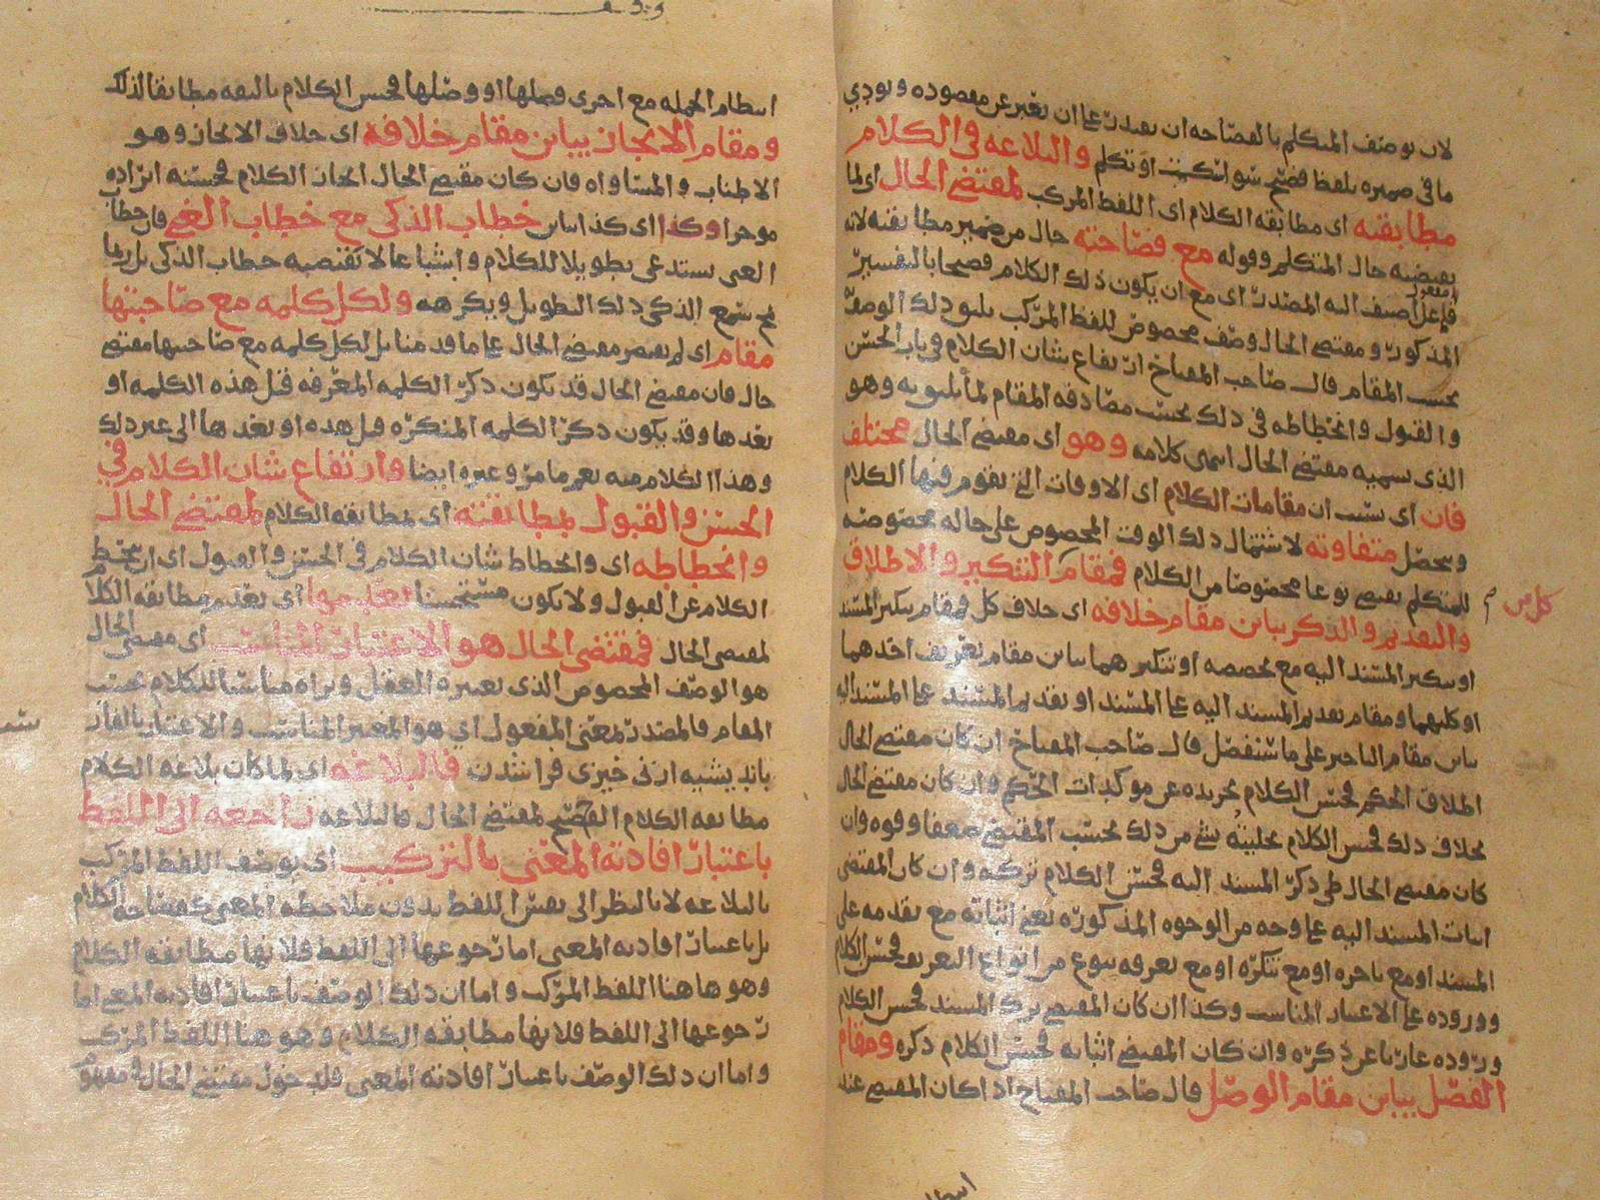 لان يوصف المتكلم بالفصاحه ان يقدر على ان يعبر عن مقصوده ويودي
ما في ضميره بلفظ فصيح سوا سكت او تكلم والبلاغه في الكلام
مطابقته اى مطابقه الكلام اى اللفظ المركب لمقتضى الحال اى لما
يقتضيه حال المتكلم وقوله مع فصاحته حال من ضمير مطابقته لانه
فاعل اضيف اليه المصدر اى مع ان يكون ذلك الكلام فصيحا بالتفسير
المذكور ومقتضى الحال وصف مخصوص للفظ المركب يليق ذلك الوصف
بحسب المقام قال صاحب المفتاح ارتفاع شان الكلام في باب الحسن
والقبول وانحطاطه في ذلك بحسب مصادفه المقام لما يليق به وهو
الذى نسميه مقتضى الحال انتهى كلامه وهو اى مقتضى الحال مختلف
فان اى بسبب ان مقامات الكلام اى الاوقات التي يقوم فيها الكلام
ويحصل متفاوته لاشتمال ذلك الوقت المخصوص على حاله مخصوصه
للمتكلم يقتضى نوعا مخصوصا من الكلام فمقام التنكير والاطلاق
كل من
والتقديم والذكر يباين مقام خلافه اى خلاف كل فمقام تنكير المسند
او تنكير المسند اليه مع تخصصه او تنكيرهما يباين مقام تعريف احدهما
او كليهما ومقام تقديم المسند اليه على المسند او تقديم المسند على المسند اليه
يباين مقام التاخير على ما سنفصل قال صاحب المفتاح ان كان مقتضى الحال
اطلاق الحكم فحسن الكلام تجريده عن موكدات الحكم وان كان مقتضى الحال
بخلاف ذلك فحسن الكلام تحليته بشي من ذلك بحسب المقتضى ضعفا وقوه وان
كان مقتضى الحال طى ذكر المسند اليه فحسن الكلام تركه وان كان المقتضى
اثبات المسند اليه على وجه من الوجوه المذكوره يعني اثباته مع تقدمه على
المسند او مع تاخره او مع تنكره او مع تعرفه بنوع من انواع التعريف فحسن الكلام
ووروده على الاعتبار المناسب وكذا ان كان المقتضى ترك المسند فحسن الكلام
وروده عاريا عن ذكره وان كان المقتضى اثباته فحسن الكلام ذكره ومقام
الفصل يباين مقام الوصل قال صاحب المفتاح اذا كان المقتضى عند
انتظام الجمله مع اخرى فصلها او وصلها فحسن الكلام تاليفه مطابقا لذلك
ومقام الايجاز يباين مقام خلافه اى خلاف الايجاز وهو
الاطناب والمساواه فان كان مقتضى الحال ايجاز الكلام فحسنه ايراده
موجزا وكذا اى كذا يباين خطاب الذكى مع خطاب الغبي فان خطاب
الغبى يستدعى تطويلا للكلام واشباعا لا تقتضيه خطاب الذكى بل ربما
يمج سمع الذكى ذلك التطويل ويكرهه ولكل كلمه مع صاحبتها
مقام اى لم يقتصر مقتضى الحال على ما قدمنا بل لكل كلمه مع صاحبتها مقتضى
حال فان مقتضى الحال قد يكون ذكر الكلمه المعرفه قبل هذه الكلمه او
بعدها وقد يكون ذكر الكلمه المنكره قبل هذه او بعدها الى غير ذلك
وهذا الكلام منه يعم ما مر وغيره ايضا وارتفاع شان الكلام في
الحسن والقبول بمطابقته اى بمطابقه الكلام لمقتضى الحال
وانحطاطه اى وانحطاط شان الكلام في الحسن والقبول اى ان ينحط
الكلام عن القبول ولا يكون مستحسنا بعدمها اى بعدم مطابقه الكلا
لمقتضى الحال فمقتضى الحال هو الاعتبار المناسب اى مقتضى الحال
هو الوصف المخصوص الذى يعتبره العقل ويراه مناسبا للكلام بحسب
المقام فالمصدر بمعنى المفعول اي هو المعتبر المناسب والاعتبار بالفار
فالبلاغه اي لما كان بلاغه الكلام
مطابقه الكلام الفصيح لمقتضى الحال فالبلاغه راجعه الى اللفظ
باعتبار افادته المعنى بالتركيب اى يوصف اللفظ المركب
بالبلاغه لا بالنظر الى نفس اللفظ بدون ملاحظه المعنى كفصاحه الكلام
بل باعتبار افادته المعنى اما رجوعها الى اللفظ فلانها مطابقه الكلام
وهو هاهنا اللفظ المركب واما ان ذلك الوصف باعتبار افادته المعنى اما
رجوعها الى اللفظ فلانها مطابقه الكلام وهو هنا اللفظ المركب
واما ان ذلك الوصف باعتبار افادته المعنى فلدخول مقتضى الحال في مفهوم